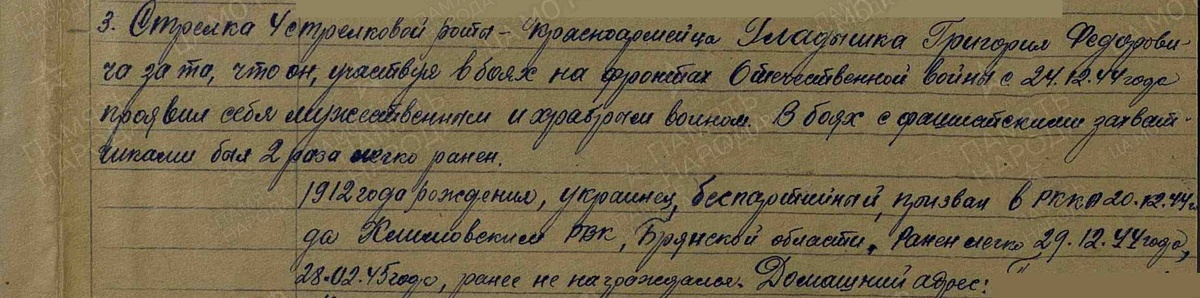 3. Стрелка 4 стрелковой роты - красноармейца Гладышка Григория Федорови-
ча за то, что он, участвуя в боях на фронтах Отечественной войны с 24.12.44 года
проявил себя мужественным и храбрым воином. В боях с фашистскими захват-
чиками был 2 раза легко ранен.
1912 года рождения, украинец, беспартийный, призван в РККА 20.12.44 го
да РВК, Брянской области. Ранен легко 29.12.44 года,
28.02.45 года, ранее не награждался. Домашний адрес: